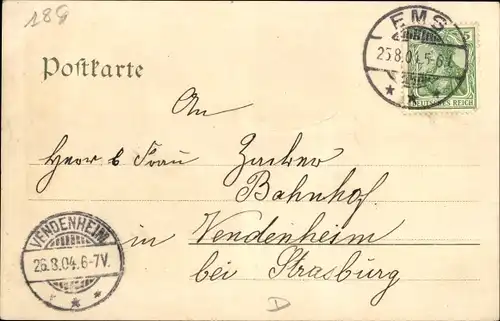 189
EMS
25.8.04. 5-6N.
5
DEUTSCHES REICH
Postkarte
An
Herr & Frau Zacher
Bahnhof
in Vendenheim
bei Strasburg
VENDENHEIM
26.8.04.6-7V.
D